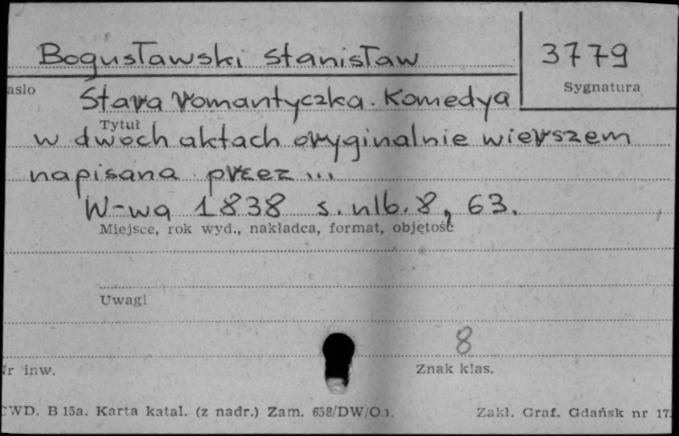 Bogusławski Stanisław
3779
asło
Sygnatura
Stara romantyczka. Komedya
Tytuł
w dwóch aktach oryginalnie wierszem
napisana przez ...
W-wa 1838 s. nlb. 8, 63.
Miejsce, rok wyd., nakładca, format, objętość
Uwagi
8
Nr inw.
Znak klas.
CWD. B 15a. Karta katal. (z nadr.) Zam. 658/DW/O.1.
Zakł. Graf. Gdańsk nr 17